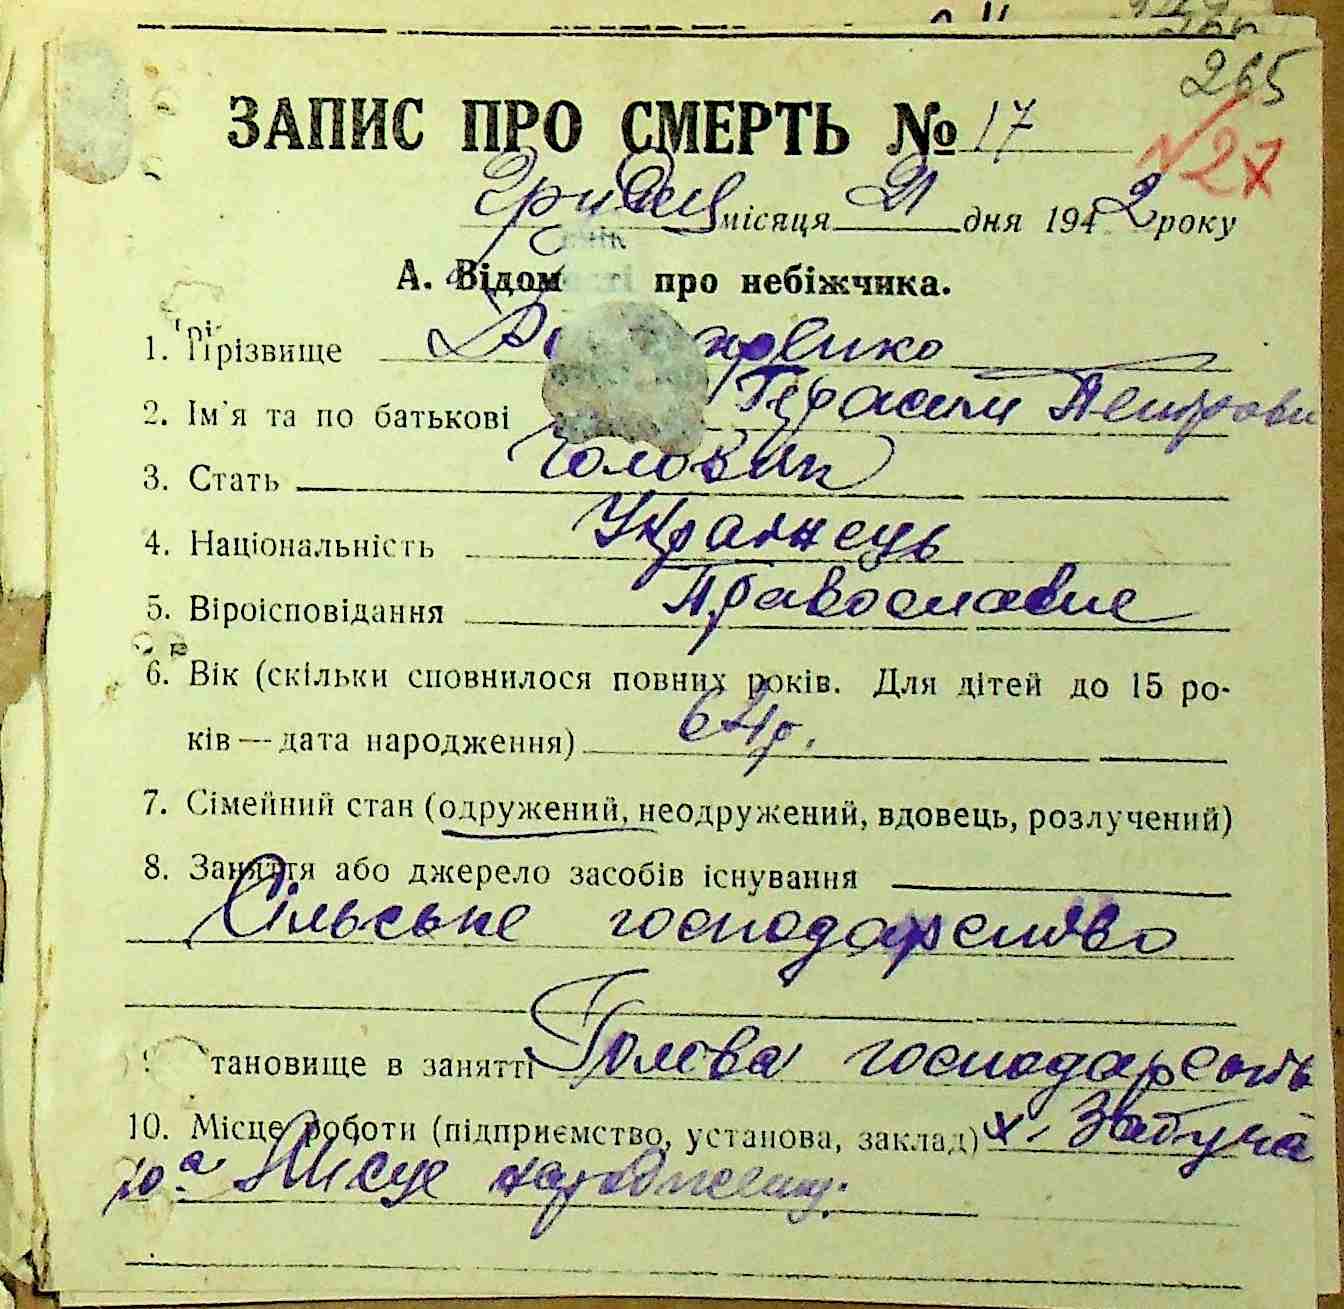 265
ЗАПИС ПРО СМЕРТЬ № 17
√27
місяця 21 дня 1942 року
А. Відом ті про небіжчика.
1. Прізвище
2. Ім'я та по батькові Герасим Петрови
3. Стать Чоловік
4. Національність Українець
5. Віроісповідання Православне
6. Вік (скільки сповнилося повних років. Для дітей до 15 ро-
ків — дата народження) 64р.
7. Сімейний стан (одружений, неодружений, вдовець, розлучений)
8. Заняття або джерело засобів існування
Сільське господарство
тановище в занятті Голова господарства
10. Місце роботи (підприємство, установа, заклад) х.
10а Місце народження